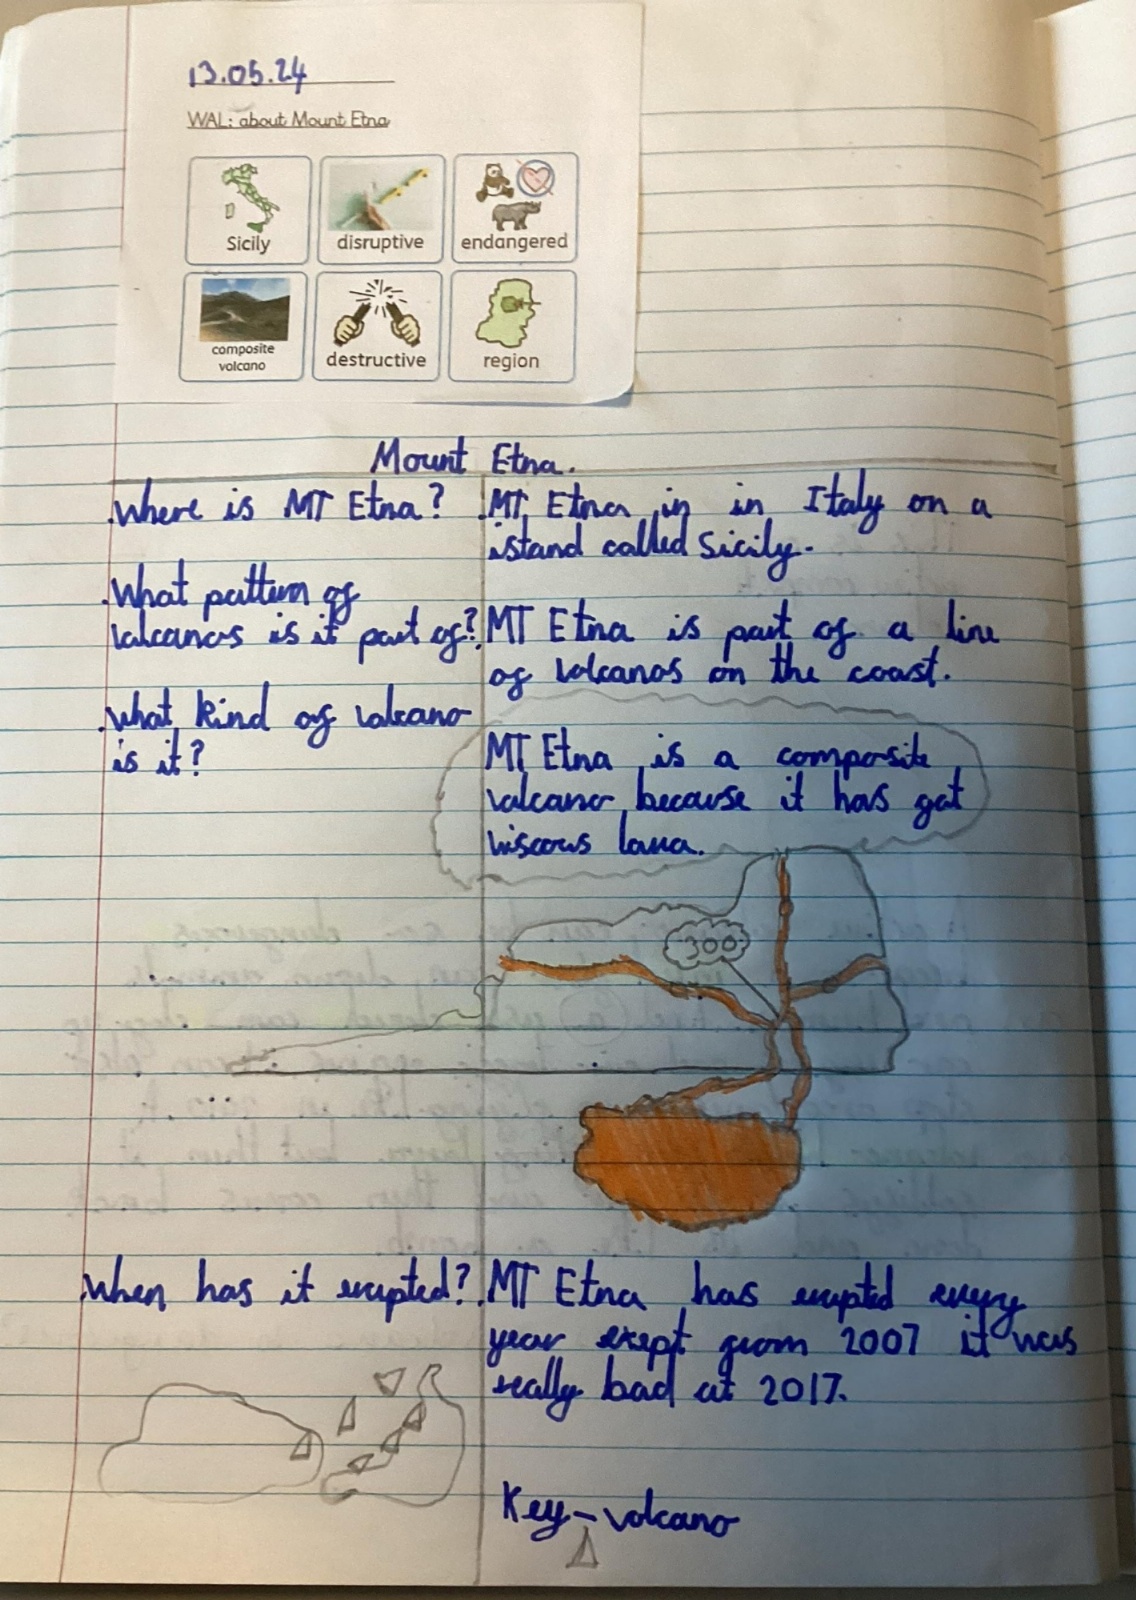 13.05.24
WAL: about Mount Etna
Sicily
disruptive
endangered
composite
volcano
destructive
region
Mount Etna.
Where is MT Etna?
MT Etna in in Italy on a
istand called Sicily.
What pattern of
volcanos is it part of?
MT Etna is part of a line
of volcanos on the coast.
What kind of volcano
is it?
MT Etna is a composite
volcano because it has got
viscous lava.
300
When has it erupted?
MT Etna has erupted every
year exept from 2007 it was
really bad at 2017.
Key - volcano